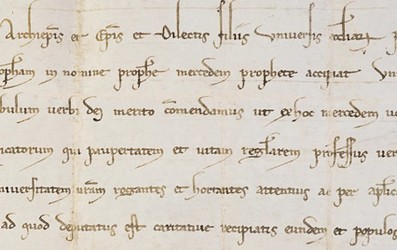 Archiepis et Epis et Dilectis filiis Universis eccliar
propham in nomine prophe mercedem prophete accipiat Un
bulum verbi dei merito comendamus ut ex hoc mercedem
icatorum qui paupertatem et vitam reglarem professus ver
niversitatem uram rogantes et hortantes attentius ac per aplic
ad quod deputatus est caritative recipiatis eundem et populos